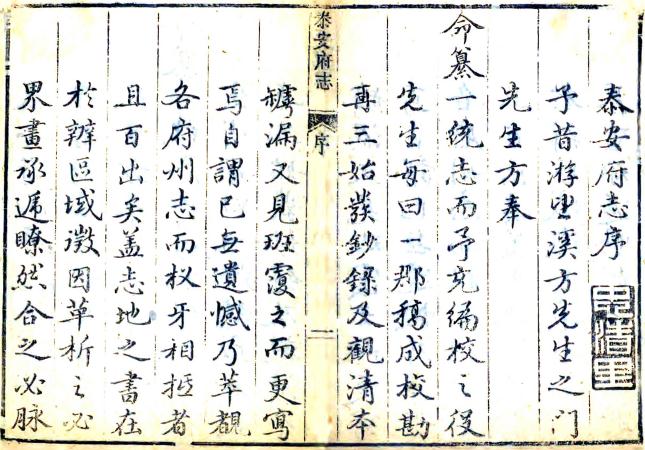 泰安府志序
予昔游望溪方先生之門
先生方奉
命纂一統志而予充編校之役
先生每曰一郡稿成校勘
再三始發鈔錄及觀清本
泰安府志
序
一
罅漏又見班覆之而更寫
焉自謂已無遺憾乃萃覩
各府州志而杈牙相抵者
且百出矣蓋志地之書在
於辨區域徵因革析之必
界畫承遞瞭然合之必脉